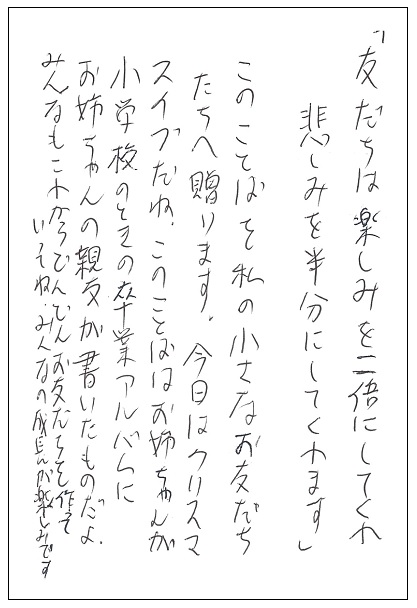 「友だちは楽しみを二倍にしてくれ
悲しみを半分にしてくれます」
このことばを私の小さなお友だち
たちへ贈ります。今日はクリスマ
スイブだね。このことばはお姉ちゃんが
小学校のときの卒業アルバムに
お姉ちゃんの親友が書いたものだよ。
みんなもこれからどんどんお友だちを作って
いってね。みんなの成長が楽しみです